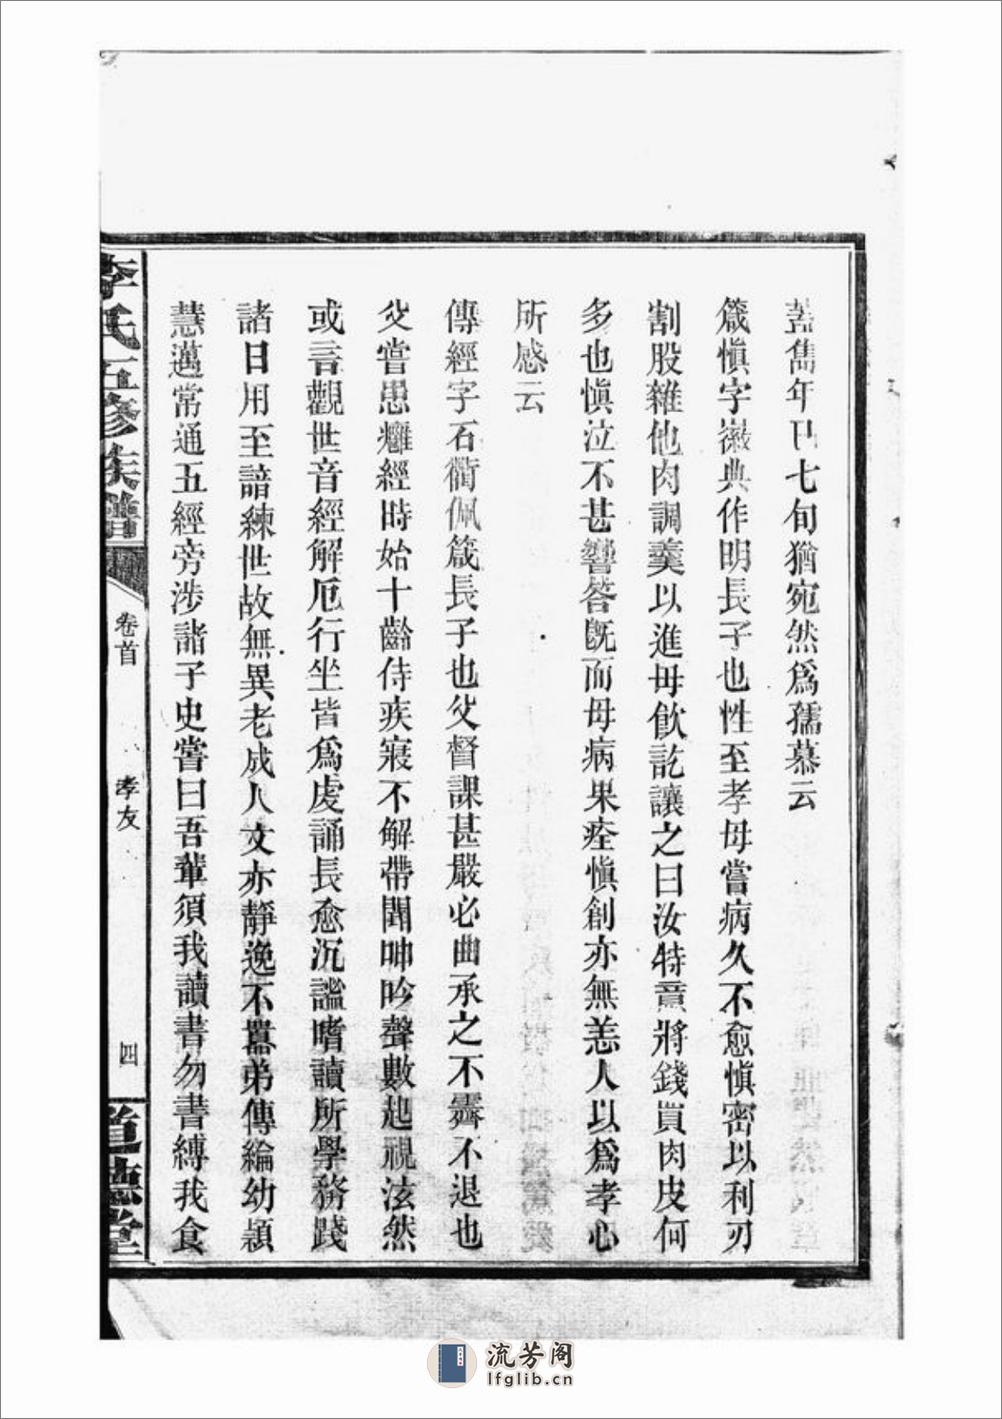 蓋雋年已七旬猶宛然爲孺慕云
箴愼字徽典作明長子也性至孝母嘗病久不愈愼密以利刃
割股雜他肉調羹以進母飮訖讓之曰汝特意將錢買肉皮何
多也愼泣不甚響答旣而母病果痊愼創亦無恙人以爲孝心
所感云
傳經字石衢佩箴長子也父督課甚嚴必曲承之不霽不退也
父嘗患癰經時始十齡侍疾寢不解帶聞呻吟聲數起視泫然
或言觀世音經解厄行坐皆爲虔誦長愈沉謐嗜讀所學務踐
諸日用至諳練世故無異老成人文亦靜逸不囂弟傳綸幼穎
慧邁常通五經旁涉諸子史嘗曰吾輩須我讀書勿書縛我食
李氏五修族譜
卷首
孝友
四
道德堂
流芳阁
lfglib.cn